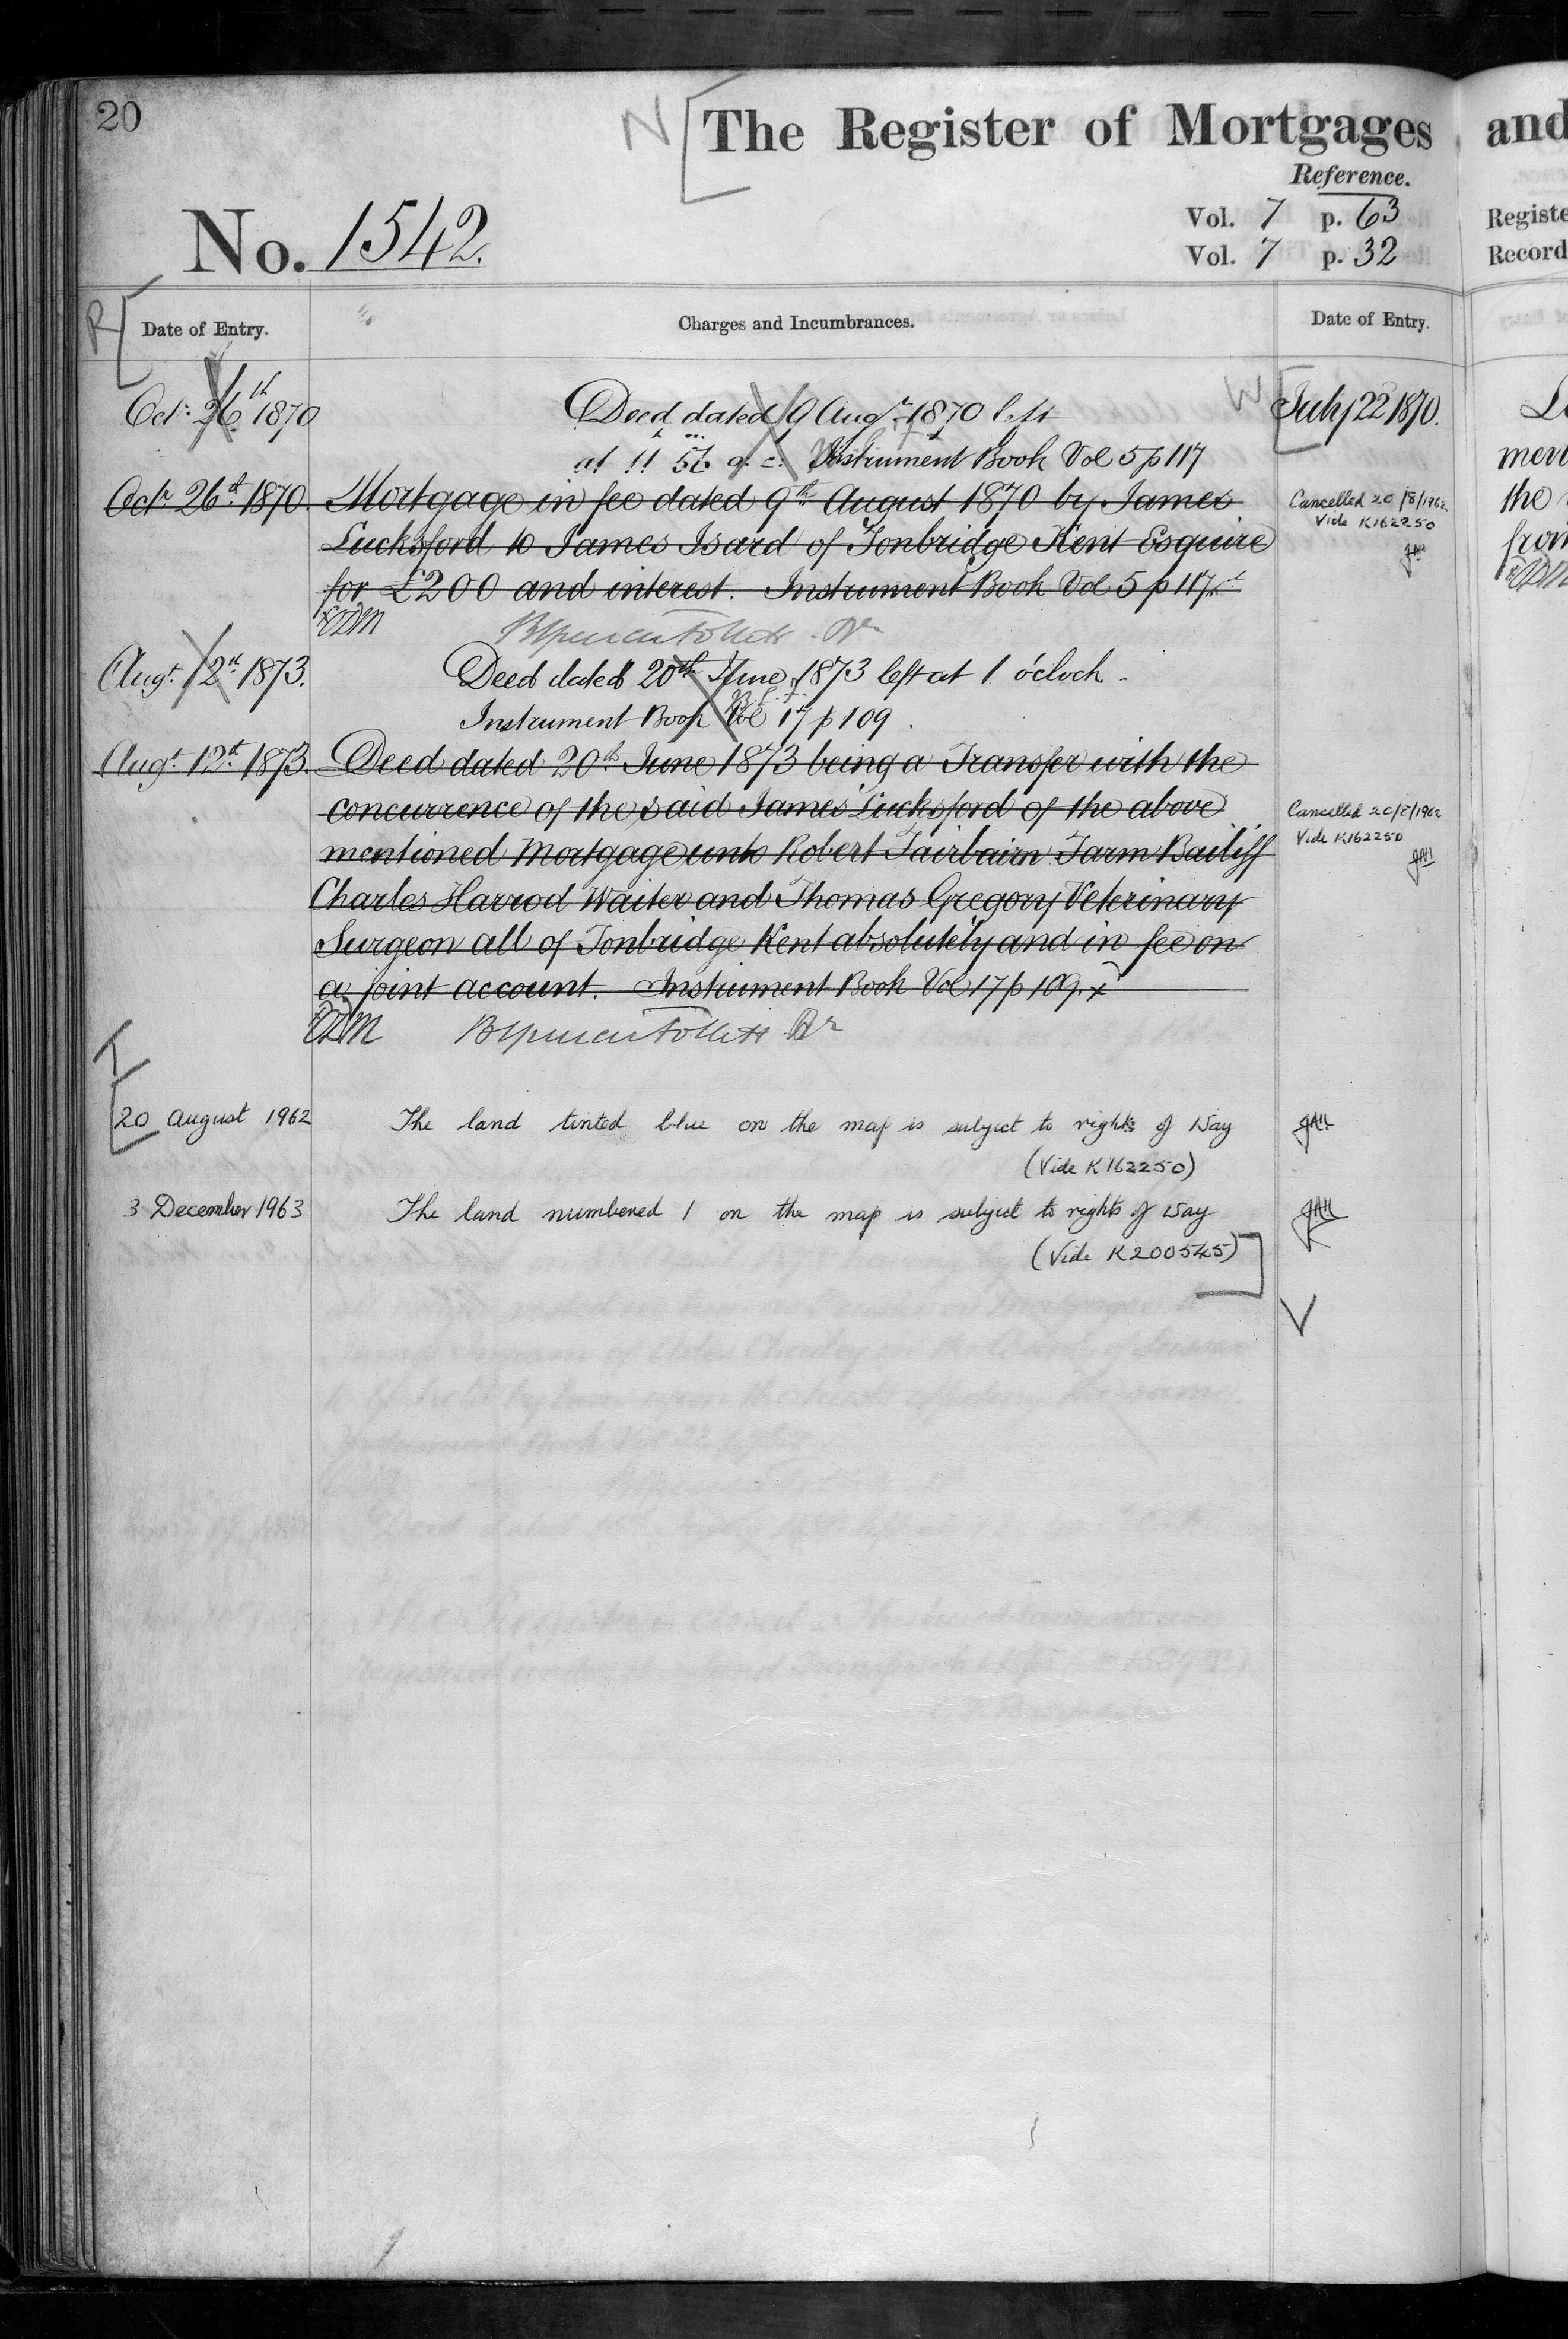 20
N
The Register of Mortgages and
Reference.
No. 1542.
Vol. 7 p. 63
Vol. 7 p. 32
Registe
Record
R
Date of Entry.
Charges and Incumbrances.
Date of Entry.
Octr. 26th 1870
Deed dated 9 Augt 1870 left
W
July 22 1870.
at 11 56 Instrument Book Vol 5 p 117
Octr 26th 1870. Mortgage in fee dated 9th August 1870 by James
Lucksford to James Isard of Tonbridge Kent Esquire
for £200 and interest. Instrument Book Vol 5 p 117
Cancelled 20/8/1962
Vide K162250
JAH
men
the
from
Augt. 12th 1873.
Deed dated 20th June 1873 left at 1 o'clock -
Instrument Book Vol 17 p 109.
Augt. 12th 1873. Deed dated 20th June 1873 being a Transfer with the
concurrence of the said James Lucksford of the above
mentioned Mortgage unto Robert Fairbairn Farm Bailiff
Charles Harrod Waiter and Thomas Gregory Veterinary
Surgeon all of Tonbridge Kent absolutely and in fee on
a joint account. Instrument Book Vol 17 p 109.
Cancelled 20/8/1962
Vide K162250
JAH
T
20 August 1962 The land tinted blue on the map is subject to rights of Way JAH
(Vide K162250)
3 December 1963 The land numbered 1 on the map is subject to rights of Way JAH
(Vide K200545)
V